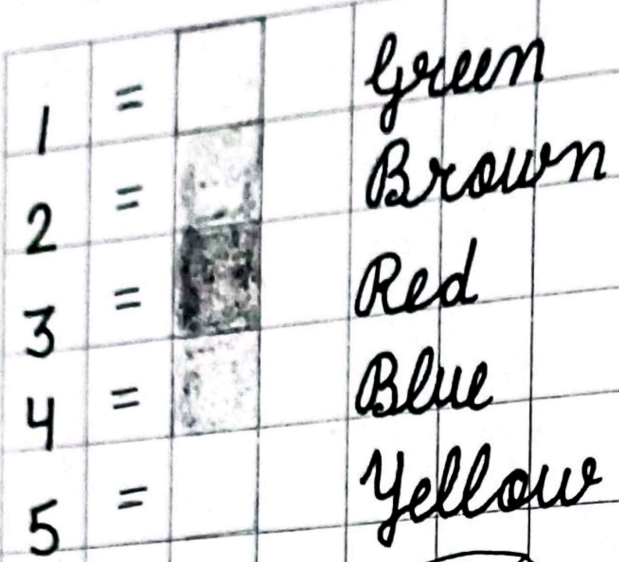 1 = Green
2 = Brown
3 = Red
4 = Blue
5 = Yellow